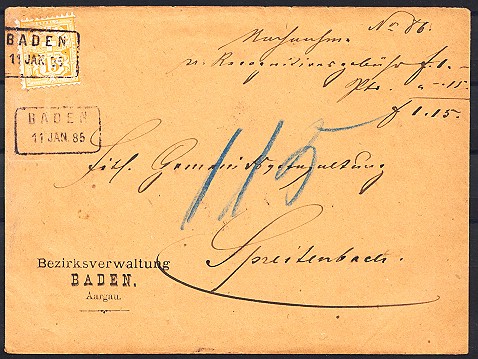 BADEN
11 JAN. 85
15
BADEN
11 JAN. 85
No 86.
Nachnahme
u. Recognitionsgebühr f. 1.–
Pto. „ –. 15.
f 1. 15.
115
Titl. Gemeindsverwaltung
Spreitenbach.
Bezirksverwaltung
BADEN.
Aargau.